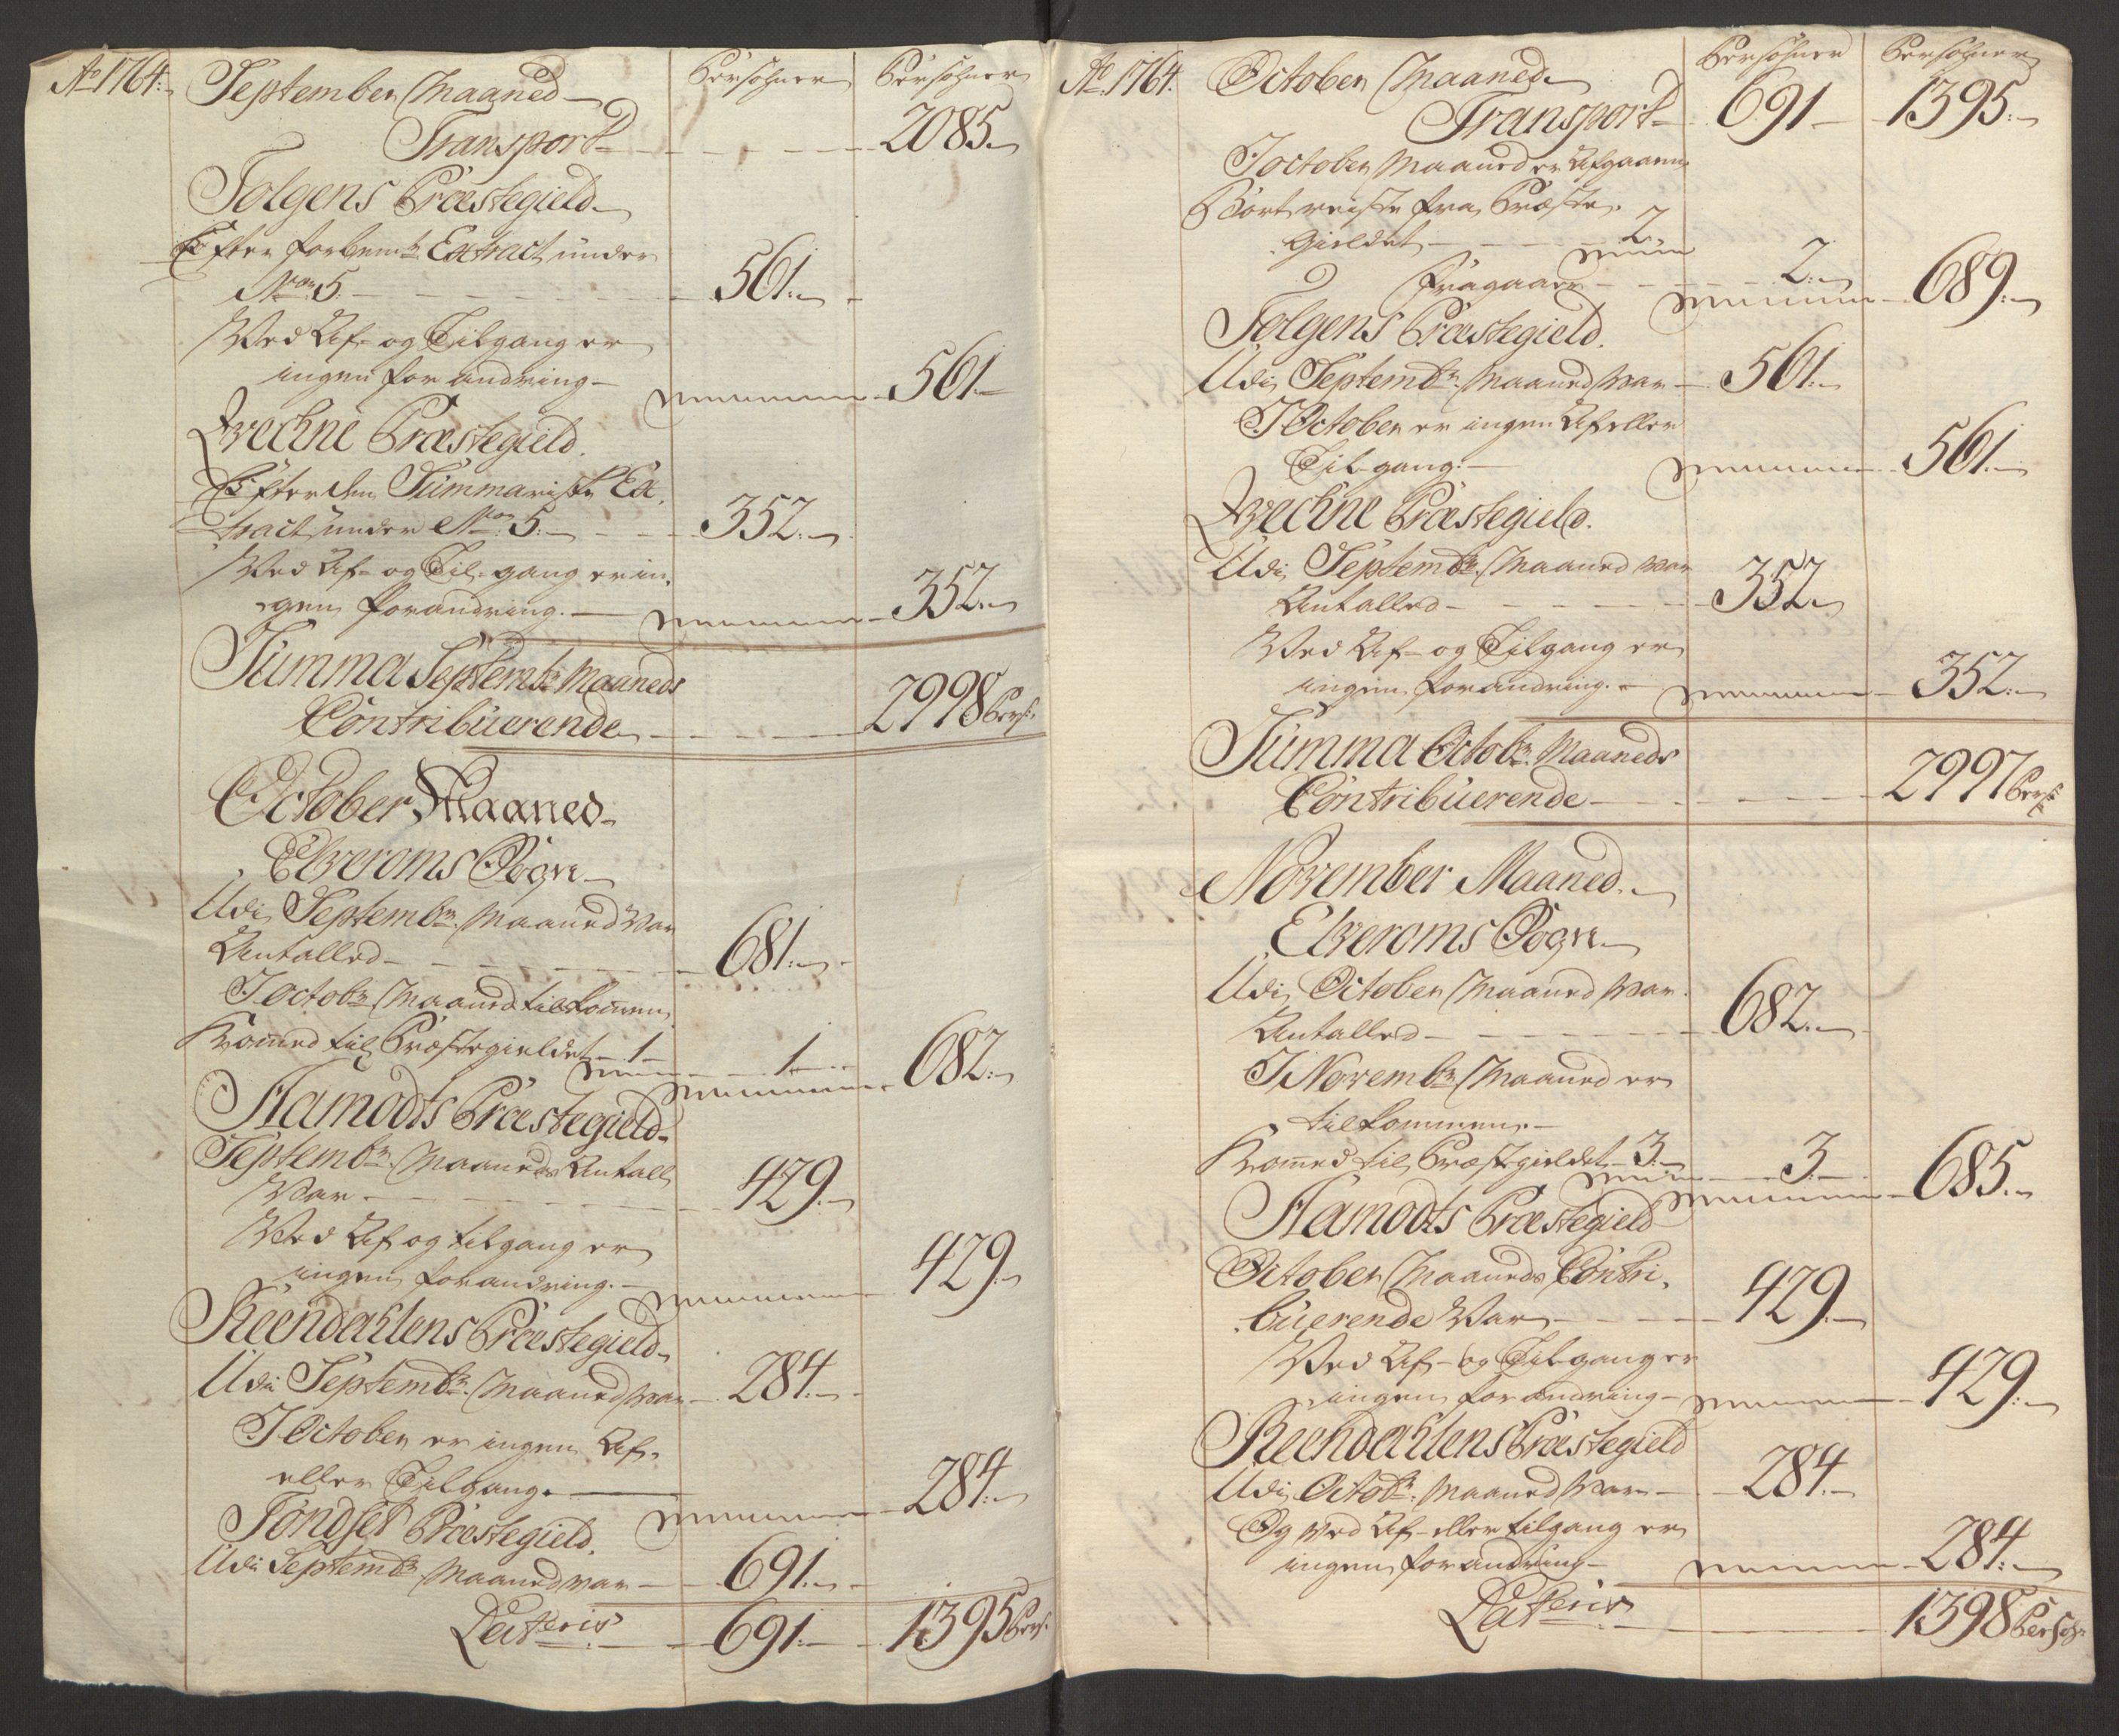 Ao 1764.
September Maaned
Persohner
Persohner
Transport 2085.
Tolgens Præstegield
Efter forbemte Extract under
No. 5. 561.
Ved Af- og Tilgang er
ingen forandring 561
Qvechne Præstegield.
Efter den Summariske Ex-
tract under No. 5. 352.
Ved Af- og Til-gang er in-
gen forandring. 352.
Summa Septembr. Maaneds
Contribuerende 2998 Pers.
October Maaned
Elveroms Sogn
Udi Septembr. Maaned var
Antalled 681.
I octobr. Maaned tilkommen
Kommed til Præstegieldet 1 1 682.
Aamodts Præstegield
Septembr. Maaneds Antall
Var 429.
Ved Af og tilgang er
ingen forandring. 429.
Reendahlens Præstegield
Udi Septembr. Maaned var 284.
I October er ingen Af-
eller Tilgang. 284.
Tøndset Præstegield.
Udi Septembr. Maaned var 691.
Lateris 691. 1395 Pers.
Ao. 1764.
October Maaned
Persohner
Persohner
Transport 691 1395.
I october Maaned er Afgaaen
Bortreiste fra Præste-
gieldet 2.
fragaaer 2. 689.
Tolgens Præstegield.
Udi Septembr. Maaned var 561.
I October er ingen Af eller
Til-gang. 561.
Qvechne Præstegield.
Udi Septembr. Maaned var
Antalled 352.
Ved Af- og Tilgang er
ingen forandring. 352.
Summa Octobr. Maaneds
Contribuerende 2997 Pers.
November Maaned.
Elveroms Sogn
Udi October Maaned var
Antalled 682.
I Novembr. Maaned er
tilkommen.
Kommed til Præstegieldet 3. 3. 685.
Aamodts Præstegield
October Maaneds Contri-
buerende Var 429.
Ved Af- og Tilgang er
ingen forandring 429.
Reendahlens Præstegield
Udi Octobr. Maaned Var 284.
Og ved Af- eller tilgang er
ingen forandring 284.
Lateris 1398 Persohr